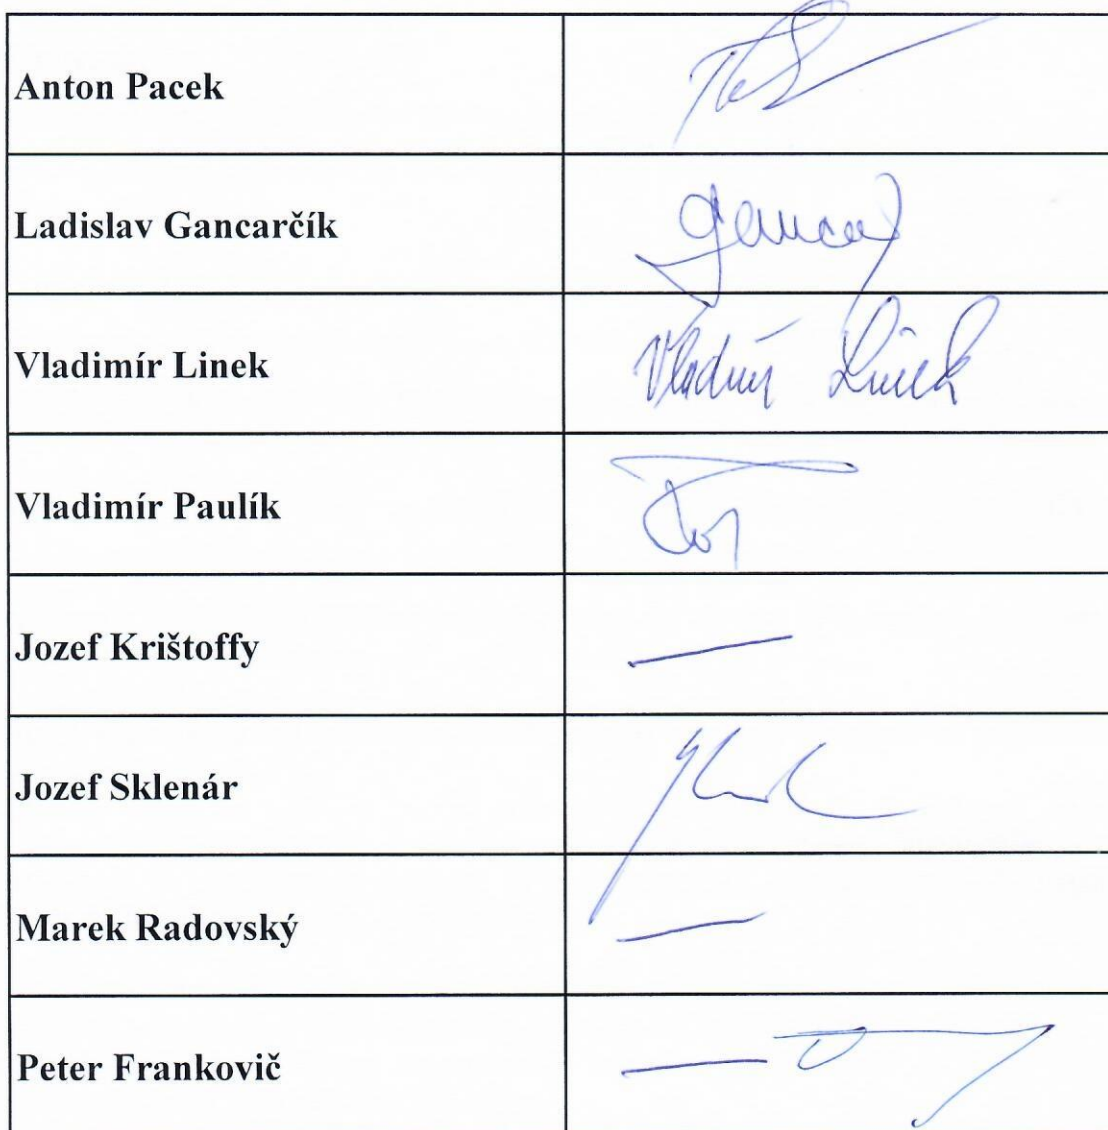 Anton Pacek
Ladislav Gancarčík
Vladimír Linek
Vladimír Linek
Vladimír Paulík
Jozef Krištoffy
—
Jozef Sklenár
Marek Radovský
—
Peter Frankovič
—